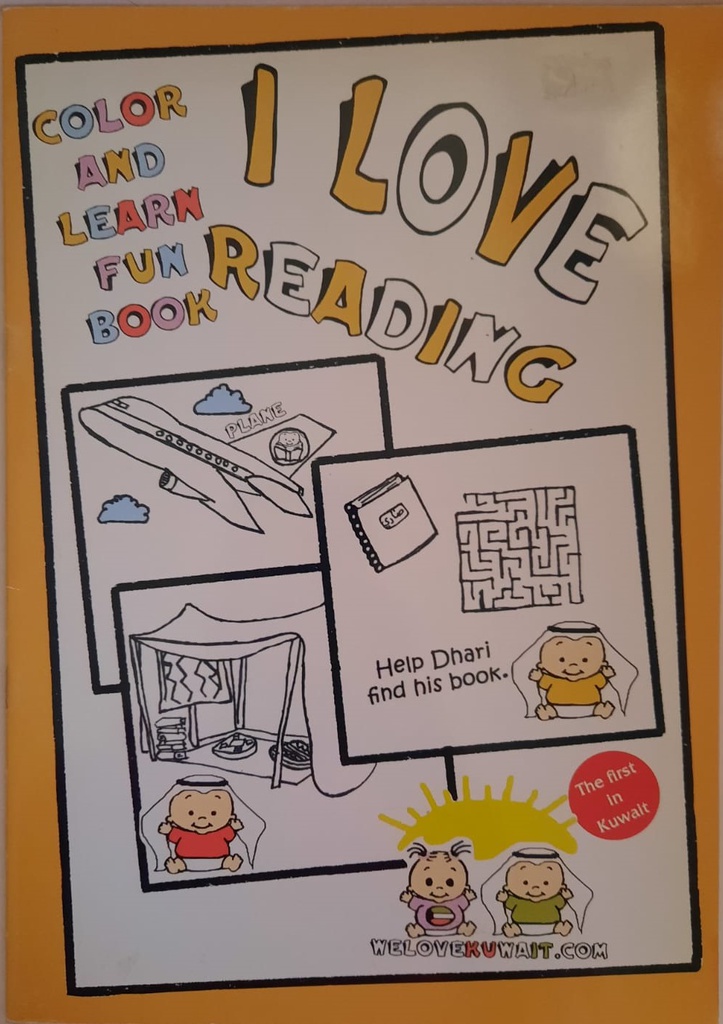 I LOVE
READING
COLOR
AND
LEARN
FUN
BOOK
PLANE
Help Dhari
find his book.
The first
in
Kuwait
WELOVEKUWAIT.COM